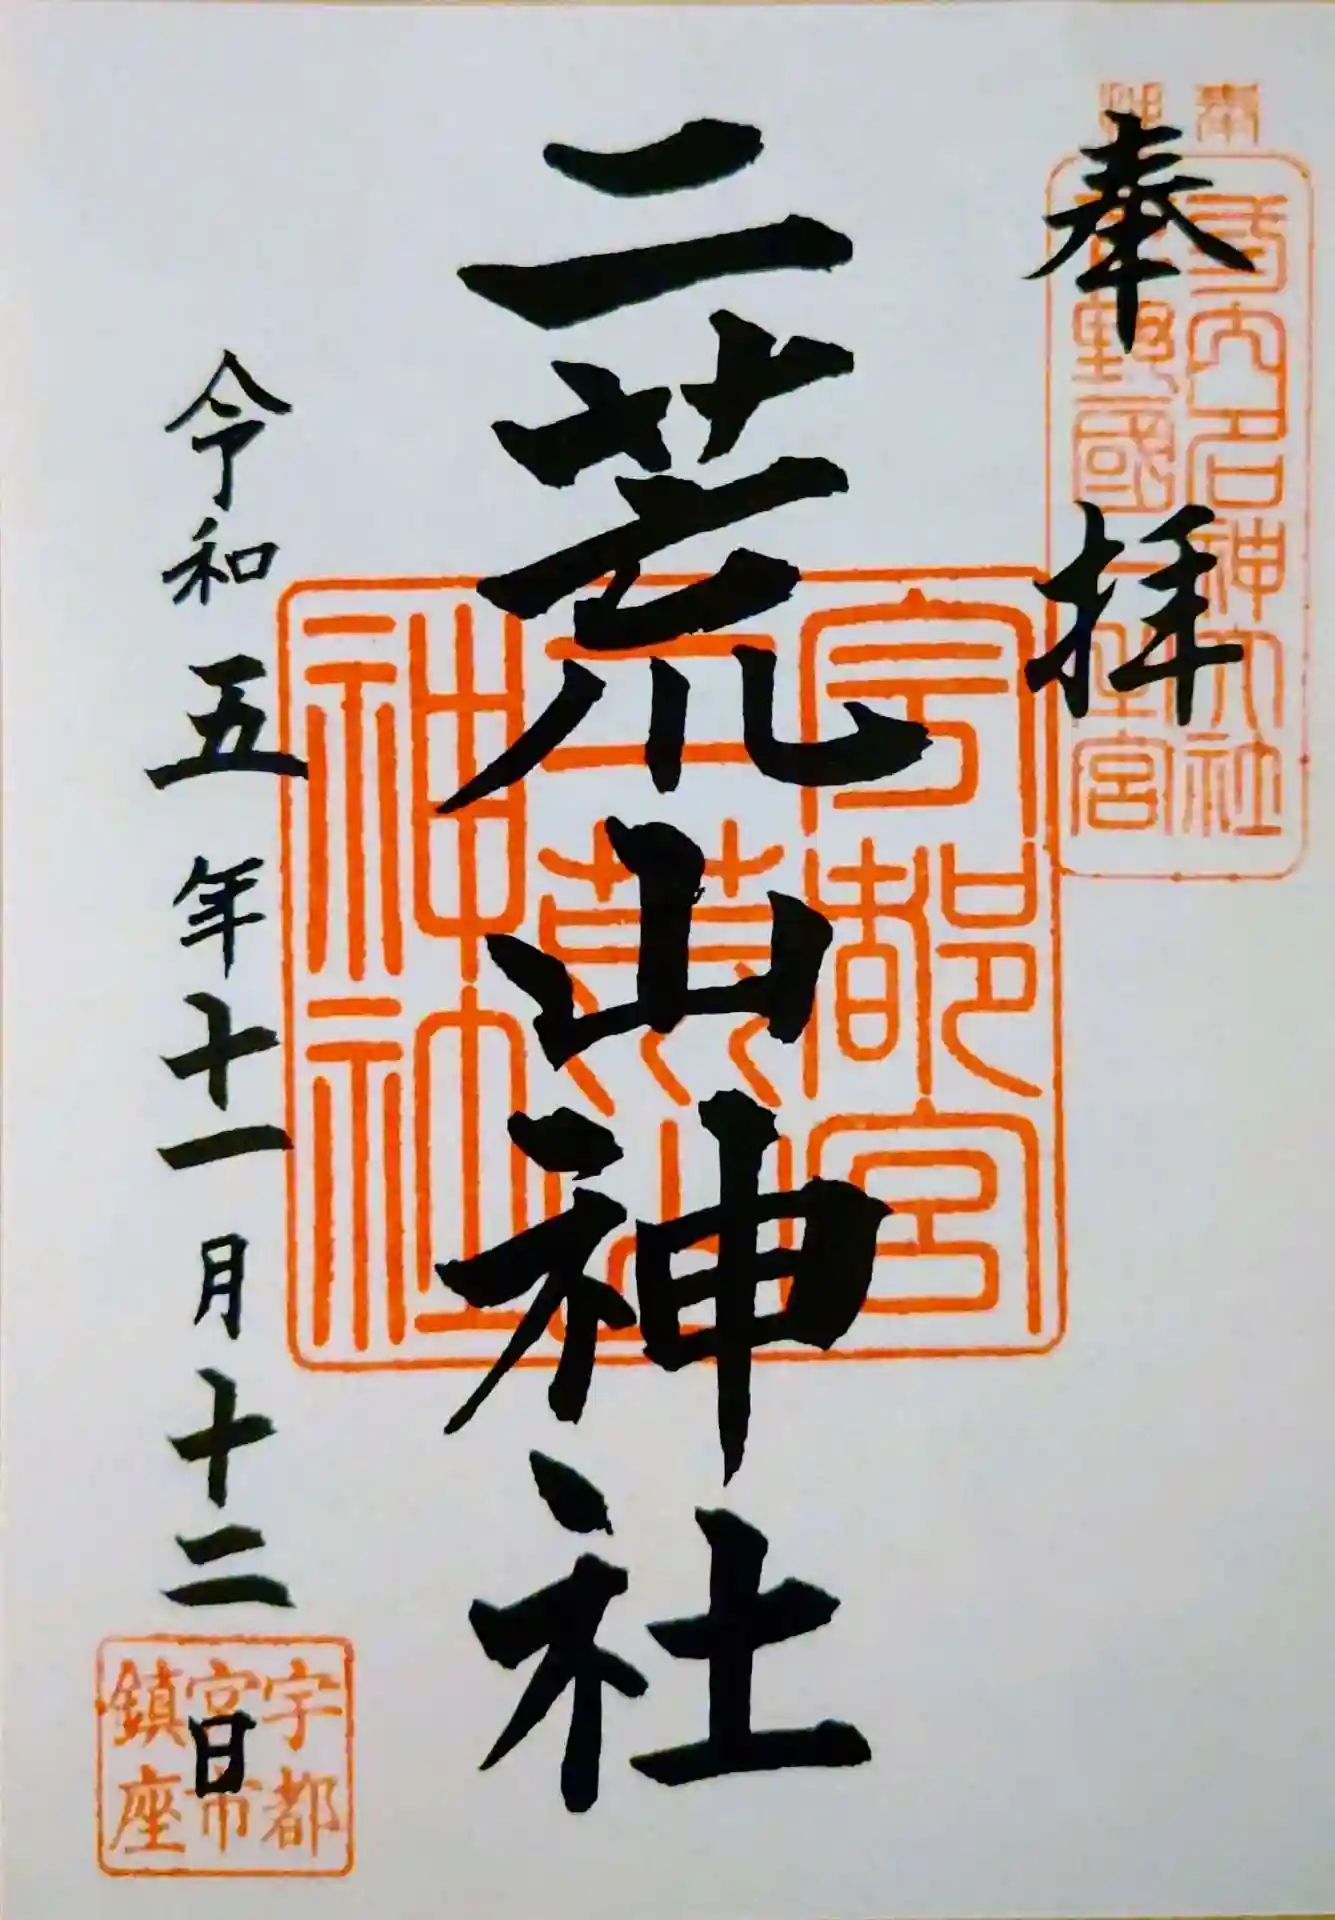 奉拝
式内名神大社
下野國一之宮
二荒山神社
宇都宮
二荒山
神社
令和五年十一月十二日
宇都
宮市
鎮座